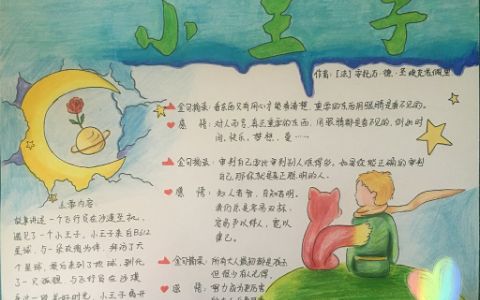 小王子
作者：[法]安托万·德·圣埃克苏佩里
金句摘录：看东西只有用心才能看清楚，重要的东西用眼睛是看不见的。
感悟：对人而言，真正重要的东西，用眼睛都是看不见的，例如时
间、快乐、梦想、爱……
金句摘录：审判自己要比审判别人难得多，如果你能正确的审判
自己，那你就是真正聪明的人。
感悟：知人者智，自知者明。
请
以
己。
金句摘录：所有大人最初都是孩子
但很少有人记得。
感悟：
主要内容
故事讲述一个飞行员在沙漠坠机，
遇见了一个小王子。小王子来自B612
星球，与一朵玫瑰为伴，拜访了六
个星球，最后来到了地球，驯化
了一只狐狸，与飞行员在沙漠
小王子离开